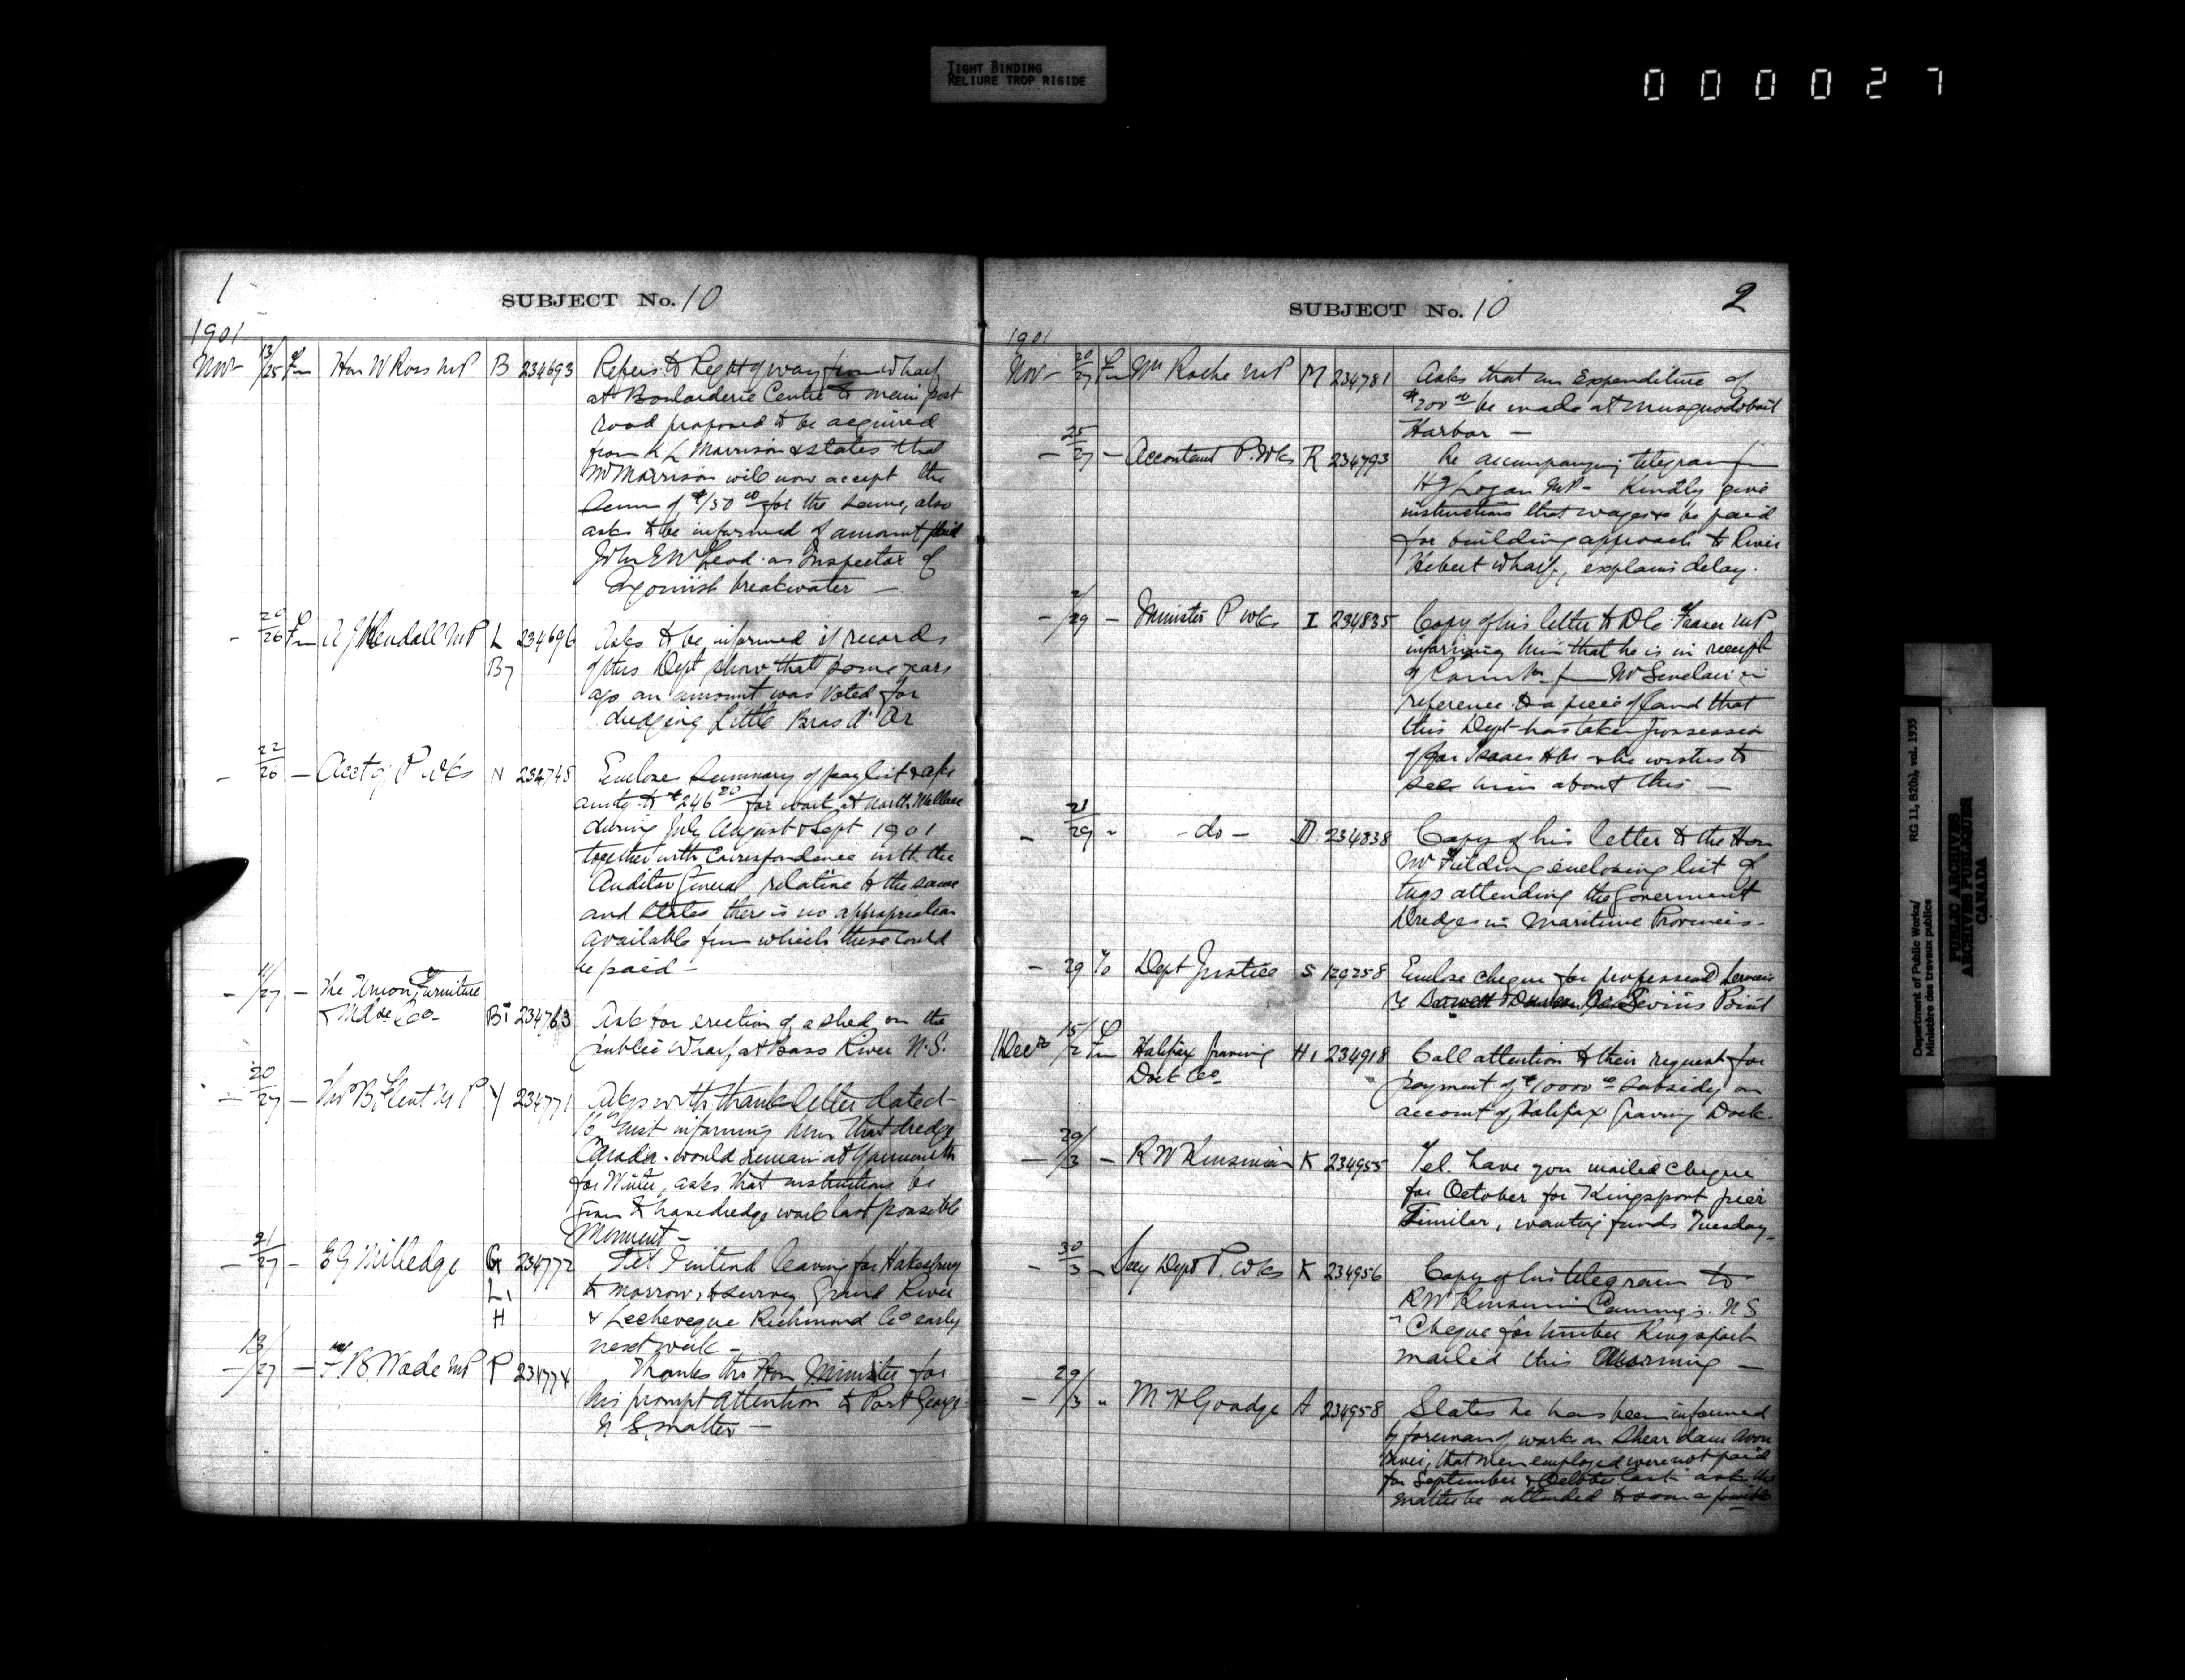 TIGHT BINDING
RELIURE TROP RIGIDE
000027
1
SUBJECT No. 10
1901
Nov 13/25 Fm Hon W Ross MP B 234693 Refers to Right of way from Wharf
at Boularderie Centre to main post
road proposed to be acquired
from K L Morrison & states that
Mr Morrison will now accept the
sum of $150 00 for the same, also
asks to be informed of amount paid
John E McLeod as Inspector of
Ingonish breakwater —
— 20/26 Fm A J Kendall MP L 234696 Asks to be informed if records
B7 of this Dept show that some years
ago an amount was voted for
dredging Little Bras d'Or
— 22/26 — Acct of P Wks N 234745 Encloses summary of pay list & a/cs
amtg to $246 20 for work at North Wallace
during July August & Sept 1901
together with Correspondence with the
Auditor General relative to the same
and states there is no appropriation
available from which these could
be paid —
— /27 — The Union Furniture
& Mdse Co. B1 234763 Ask for erection of a shed on the
public Wharf at Bass River N.S.
— 20/27 — Thos B Flint MP Y 234771 Akgs with thanks letter dated
16th inst informing him that dredge
Canada would remain at Yarmouth
for Winter, asks that instructions be
given to have dredge work last possible
Moment —
— 21/27 — E G Milledge G 234772 Tel I intend leaving for Hakesbury
L1 to morrow, to survey Grand River
H & Lecheveque Richmond Co early
next week —
— 13/27 — F B Wade MP P 234774 Thanks the Hon Minister for
his prompt attention to Port George
N S matter —
2
SUBJECT No. 10
1901
Nov 20/27 Fm Wm Roche MP M 234781 Asks that an Expenditure of
$200 00 be made at Musquodoboit
Harbor —
— 25/27 — Accountant P. Wks R 234793 Re accompanying telegram fm
H J Logan MP — Kindly give
instructions that wages be paid
for building approach to River
Hebert Wharf, explains delay.
— /29 — Minister P Wks I 234835 Copy of his letter to D C Fraser MP
informing him that he is in receipt
of from Mr Sinclair in
reference to a piece of land that
this Dept has taken possession
of for Isaacs Hbr & he wishes to
see him about this —
— 21/29 " - do - D 234838 Copy of his letter to the Hon
Mr Fielding enclosing list of
tugs attending the Goverment
Dredges in Maritime Provinces.
— 29 To Dept Justice S 129258 Enclose cheque for professional services
Point
Dec 15/2 Fm Halifax Graving H1 234918 Call attention to their request for
Dock Co payment of $10000 00 subsidy on
account of Halifax Graving Dock.
— 29/3 — R W Kinsman K 234955 Tel. have you mailed cheque
for October for Kingsport pier
Similar, wanting funds Tuesday
— 30/3 — Secy Dept P. Wks K 234956 Copy of his telegram to
R W Kinsman Canning N S
"Cheque for timber Kingsport
mailed this Morning —
— 29/3 " M H Goudge A 234958 States he has been informed
by foreman of works on Shear dam Avon
River, that men employed were not paid
for September & October last asks the
matter be attended to soon as possible
Department of Public Works/
Ministère des travaux publics
RG 11, B20(b), vol. 1935
PUBLIC ARCHIVES
ARCHIVES PUBLIQUES
CANADA